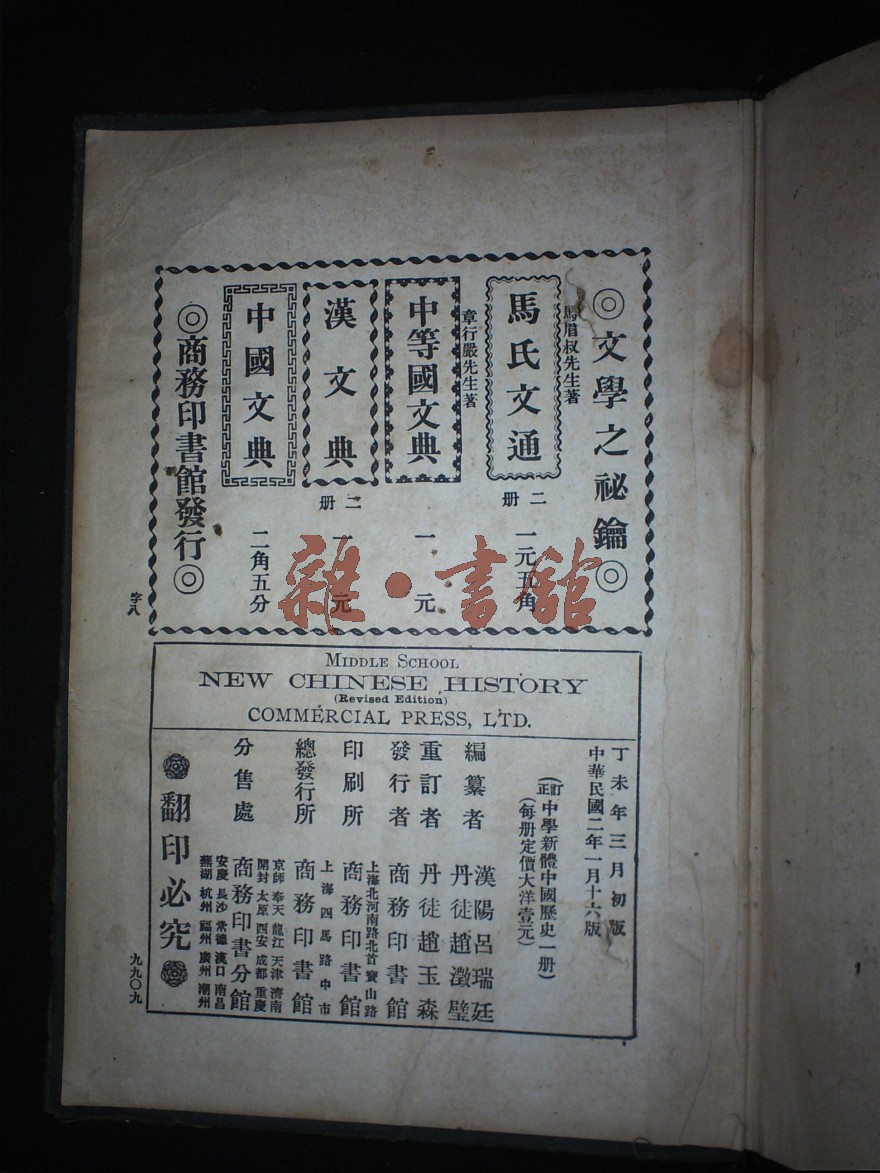 ◎文學之祕鑰◎
馬眉叔先生著
馬氏文通
二册
一元五角
章行嚴先生著
中等國文典
一元
漢文典
二册
一元
中國文典
二角五分
◎商務印書館發行◎
字八
MIDDLE SCHOOL
NEW CHINESE HISTORY
(Revised Edition)
COMMERCIAL PRESS, LTD.
丁未年三月初版
中華民國二年一月十六版
(訂正中學新體中國歷史一册)
(每册定價大洋壹元)
編纂者
漢陽呂瑞廷
丹徒趙澂璧
重訂者
丹徒趙玉森
發行者
商務印書館
印刷所
上海北河南路北首寶山路
商務印書館
總發行所
上海四馬路中市
商務印書館
分售處
京師 奉天 龍江 天津 濟南
開封 太原 西安 成都 重慶
商務印書分館
安慶 長沙 常德 漢口 南昌
蕪湖 杭州 福州 廣州 潮州
翻印必究
九九〇九
雜·書館